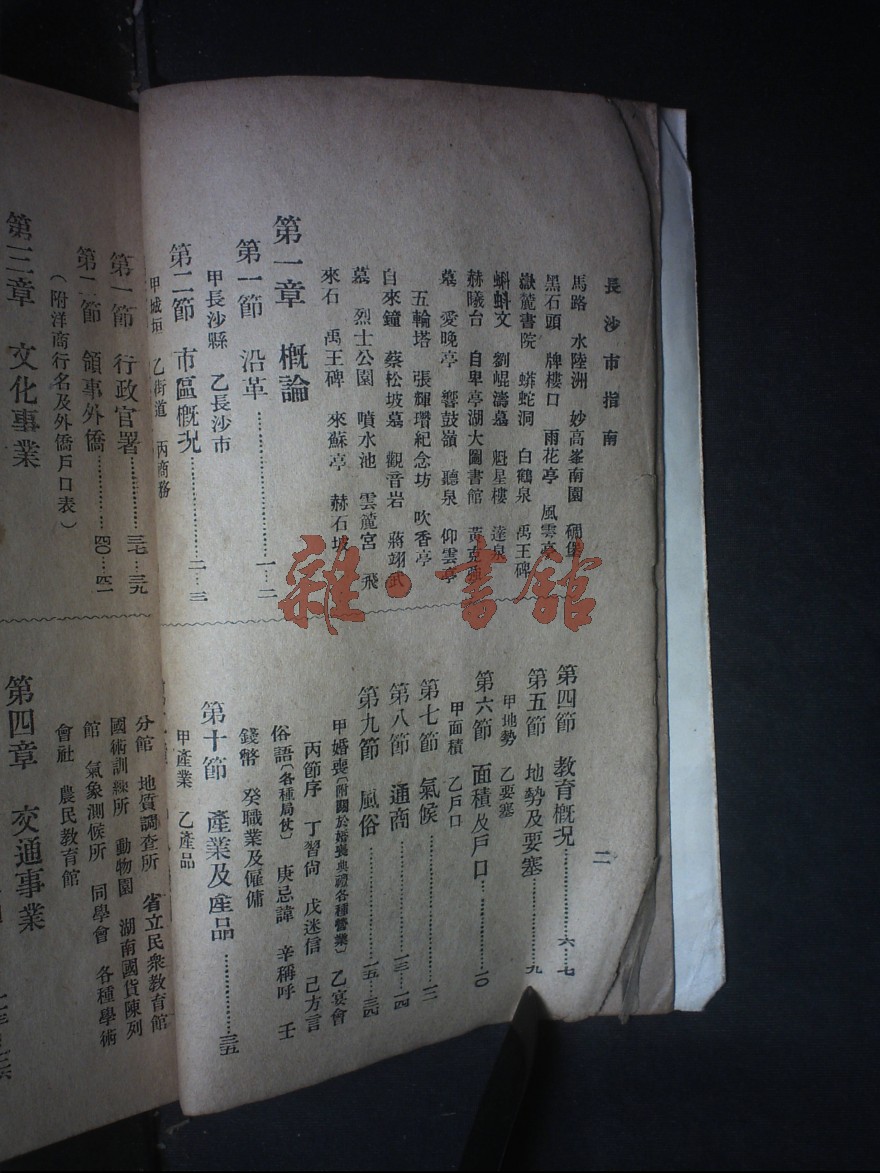 長沙市指南
二
馬路 水陸洲 妙高峯南園 碉堡
黑石頭 牌樓口 雨花亭 風雲亭
嶽麓書院 蟒蛇洞 白鶴泉 禹王碑
蝌蚪文 劉崐濤墓 魁星樓 達泉
赫曦台 自卑亭湖大圖書館 黃克強
墓 愛晚亭 響鼓嶺 聽泉 仰雲亭
五輪塔 張輝瓚紀念坊 吹香亭
自來鐘 蔡松坡墓 觀音岩 蔣翊武
墓 烈士公園 噴水池 雲麓宮 飛
來石 禹王碑 來蘇亭 赫石坡
第一章 概論
第一節 沿革…………一…二
甲長沙縣 乙長沙市
第二節 市區概況…………二…三
甲城垣 乙街道 丙商務
第四節 教育概況…………六…七
第五節 地勢及要塞…………九
甲地勢 乙要塞
第六節 面積及戶口…………一〇
甲面積 乙戶口
第七節 氣候…………一二
第八節 通商…………一三…一四
第九節 風俗…………一五…三四
甲婚喪〔附關於婚喪典禮各種營業〕 乙宴會
丙節序 丁習尙 戊迷信 己方言
俗語〔各種局伙〕 庚忌諱 辛稱呼 壬
錢幣 癸職業及僱傭
第十節 產業及產品…………三五
甲產業 乙產品
第一節 行政官署…………三七…三九
第二節 領事外僑…………四〇…四一
（附洋商行名及外僑戶口表）
第三章 文化事業
分館 地質調查所 省立民衆教育館
國術訓練所 動物園 湖南國貨陳列
館 氣象測候所 同學會 各種學術
會社 農民教育館
第四章 交通事業
雜·書館